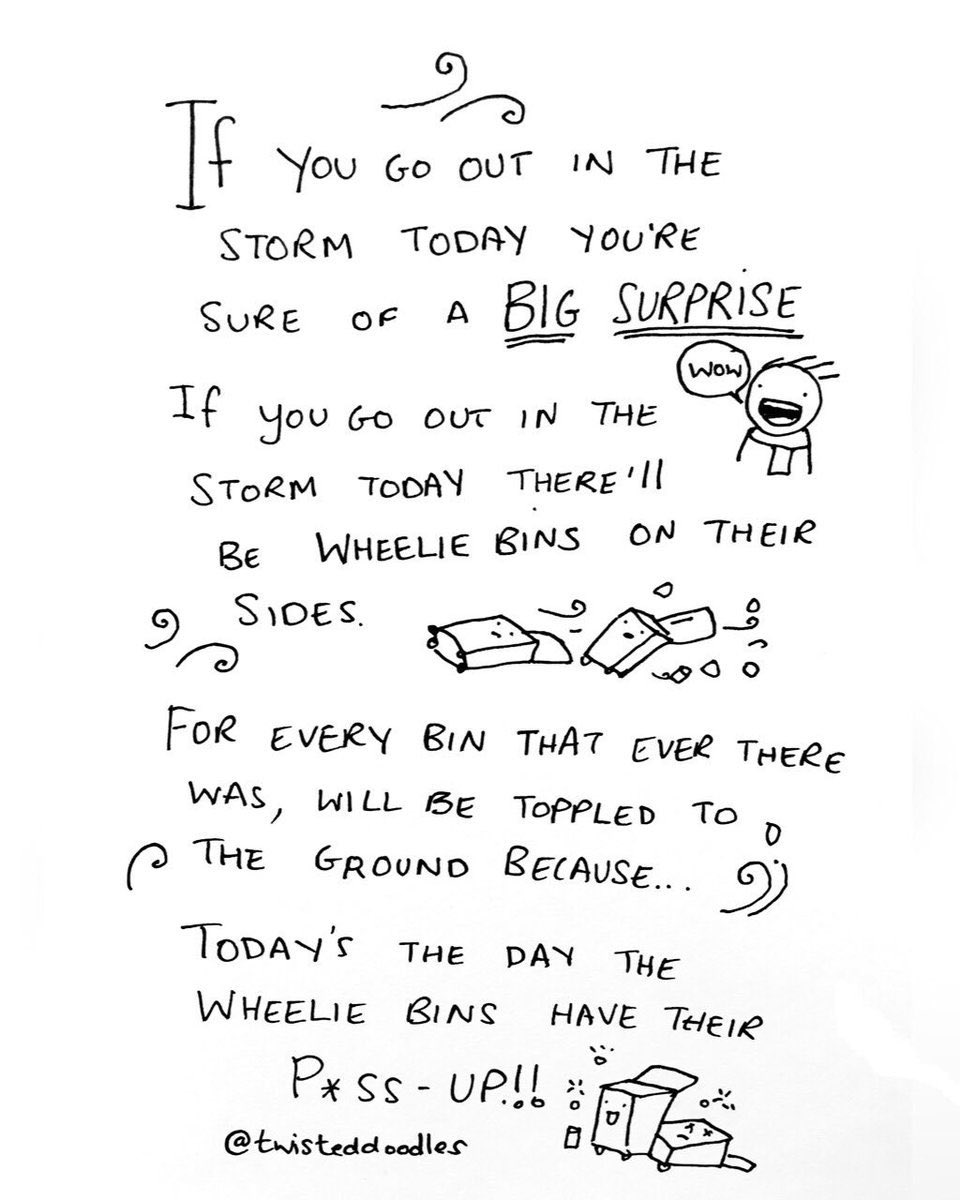 If you GO OUT IN THE
STORM TODAY YOU'RE
SURE OF A BIG SURPRISE
WOW
If you GO OUT IN THE
STORM TODAY THERE'll
BE WHEELIE BINS ON THEIR
SIDES.
FOR EVERY BIN THAT EVER THERE
WAS, WILL BE TOPPLED TO
THE GROUND BECAUSE...
TODAY'S THE DAY THE
WHEELIE BINS HAVE THEIR
P*SS-UP!!
@twisteddoodles